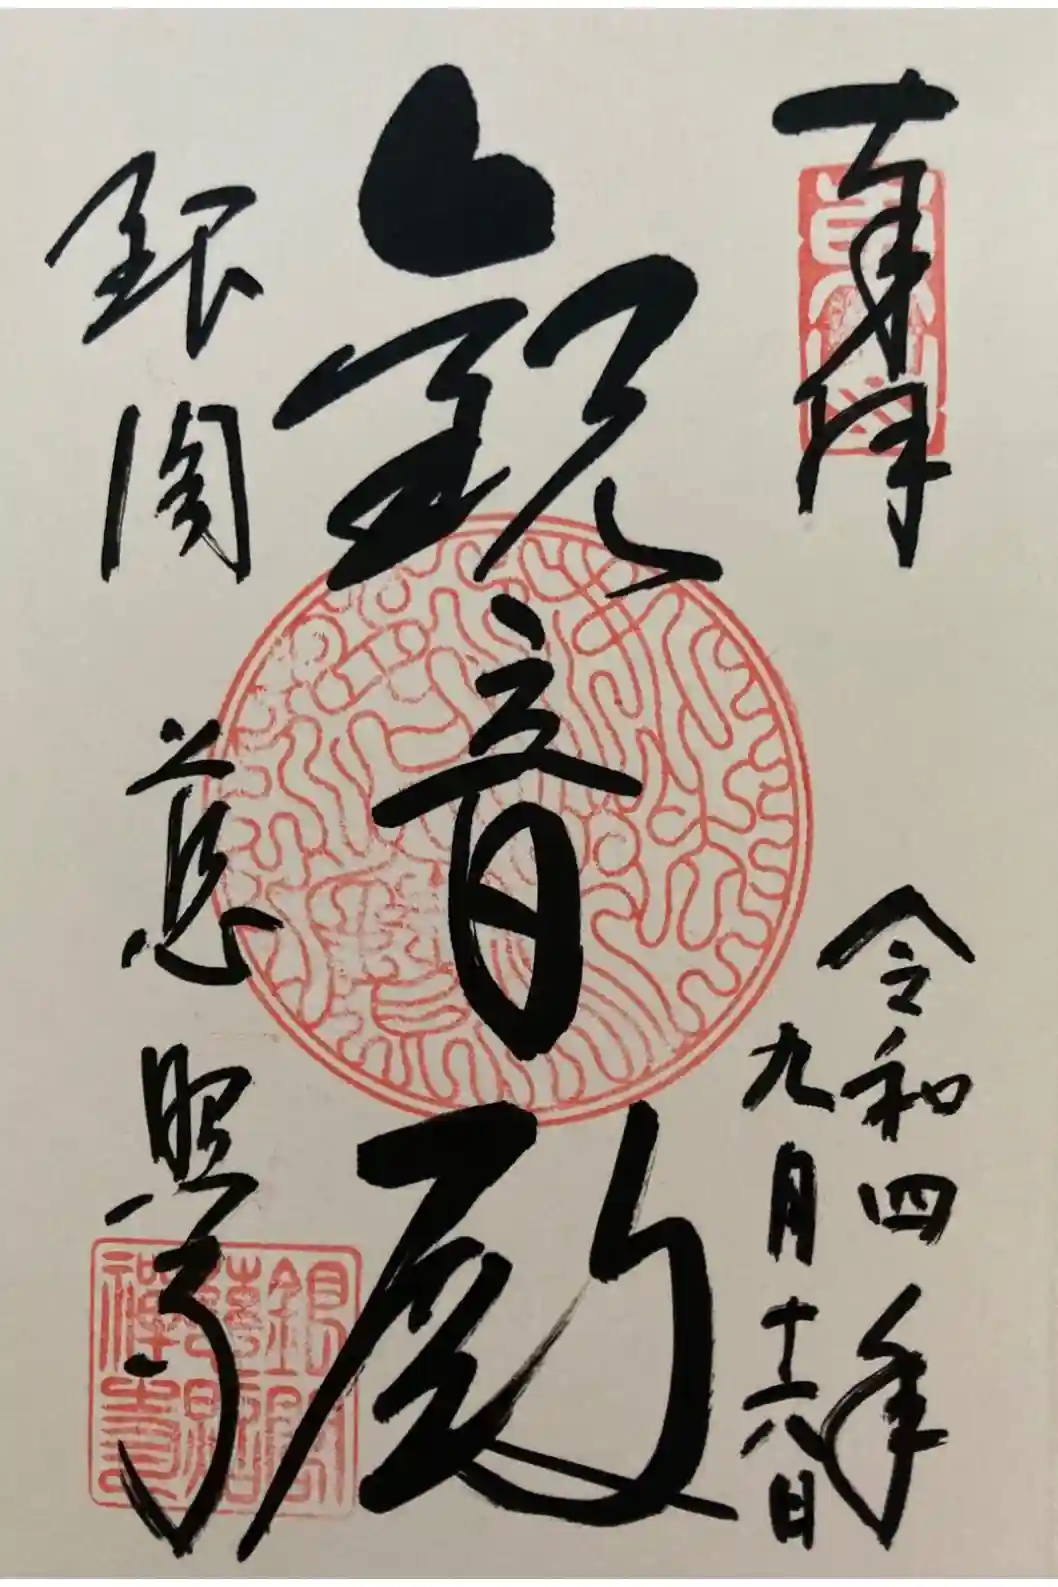 奉拝
令和四年
九月十六日
観音殿
銀閣 慈照寺
銀閣慈照禅寺